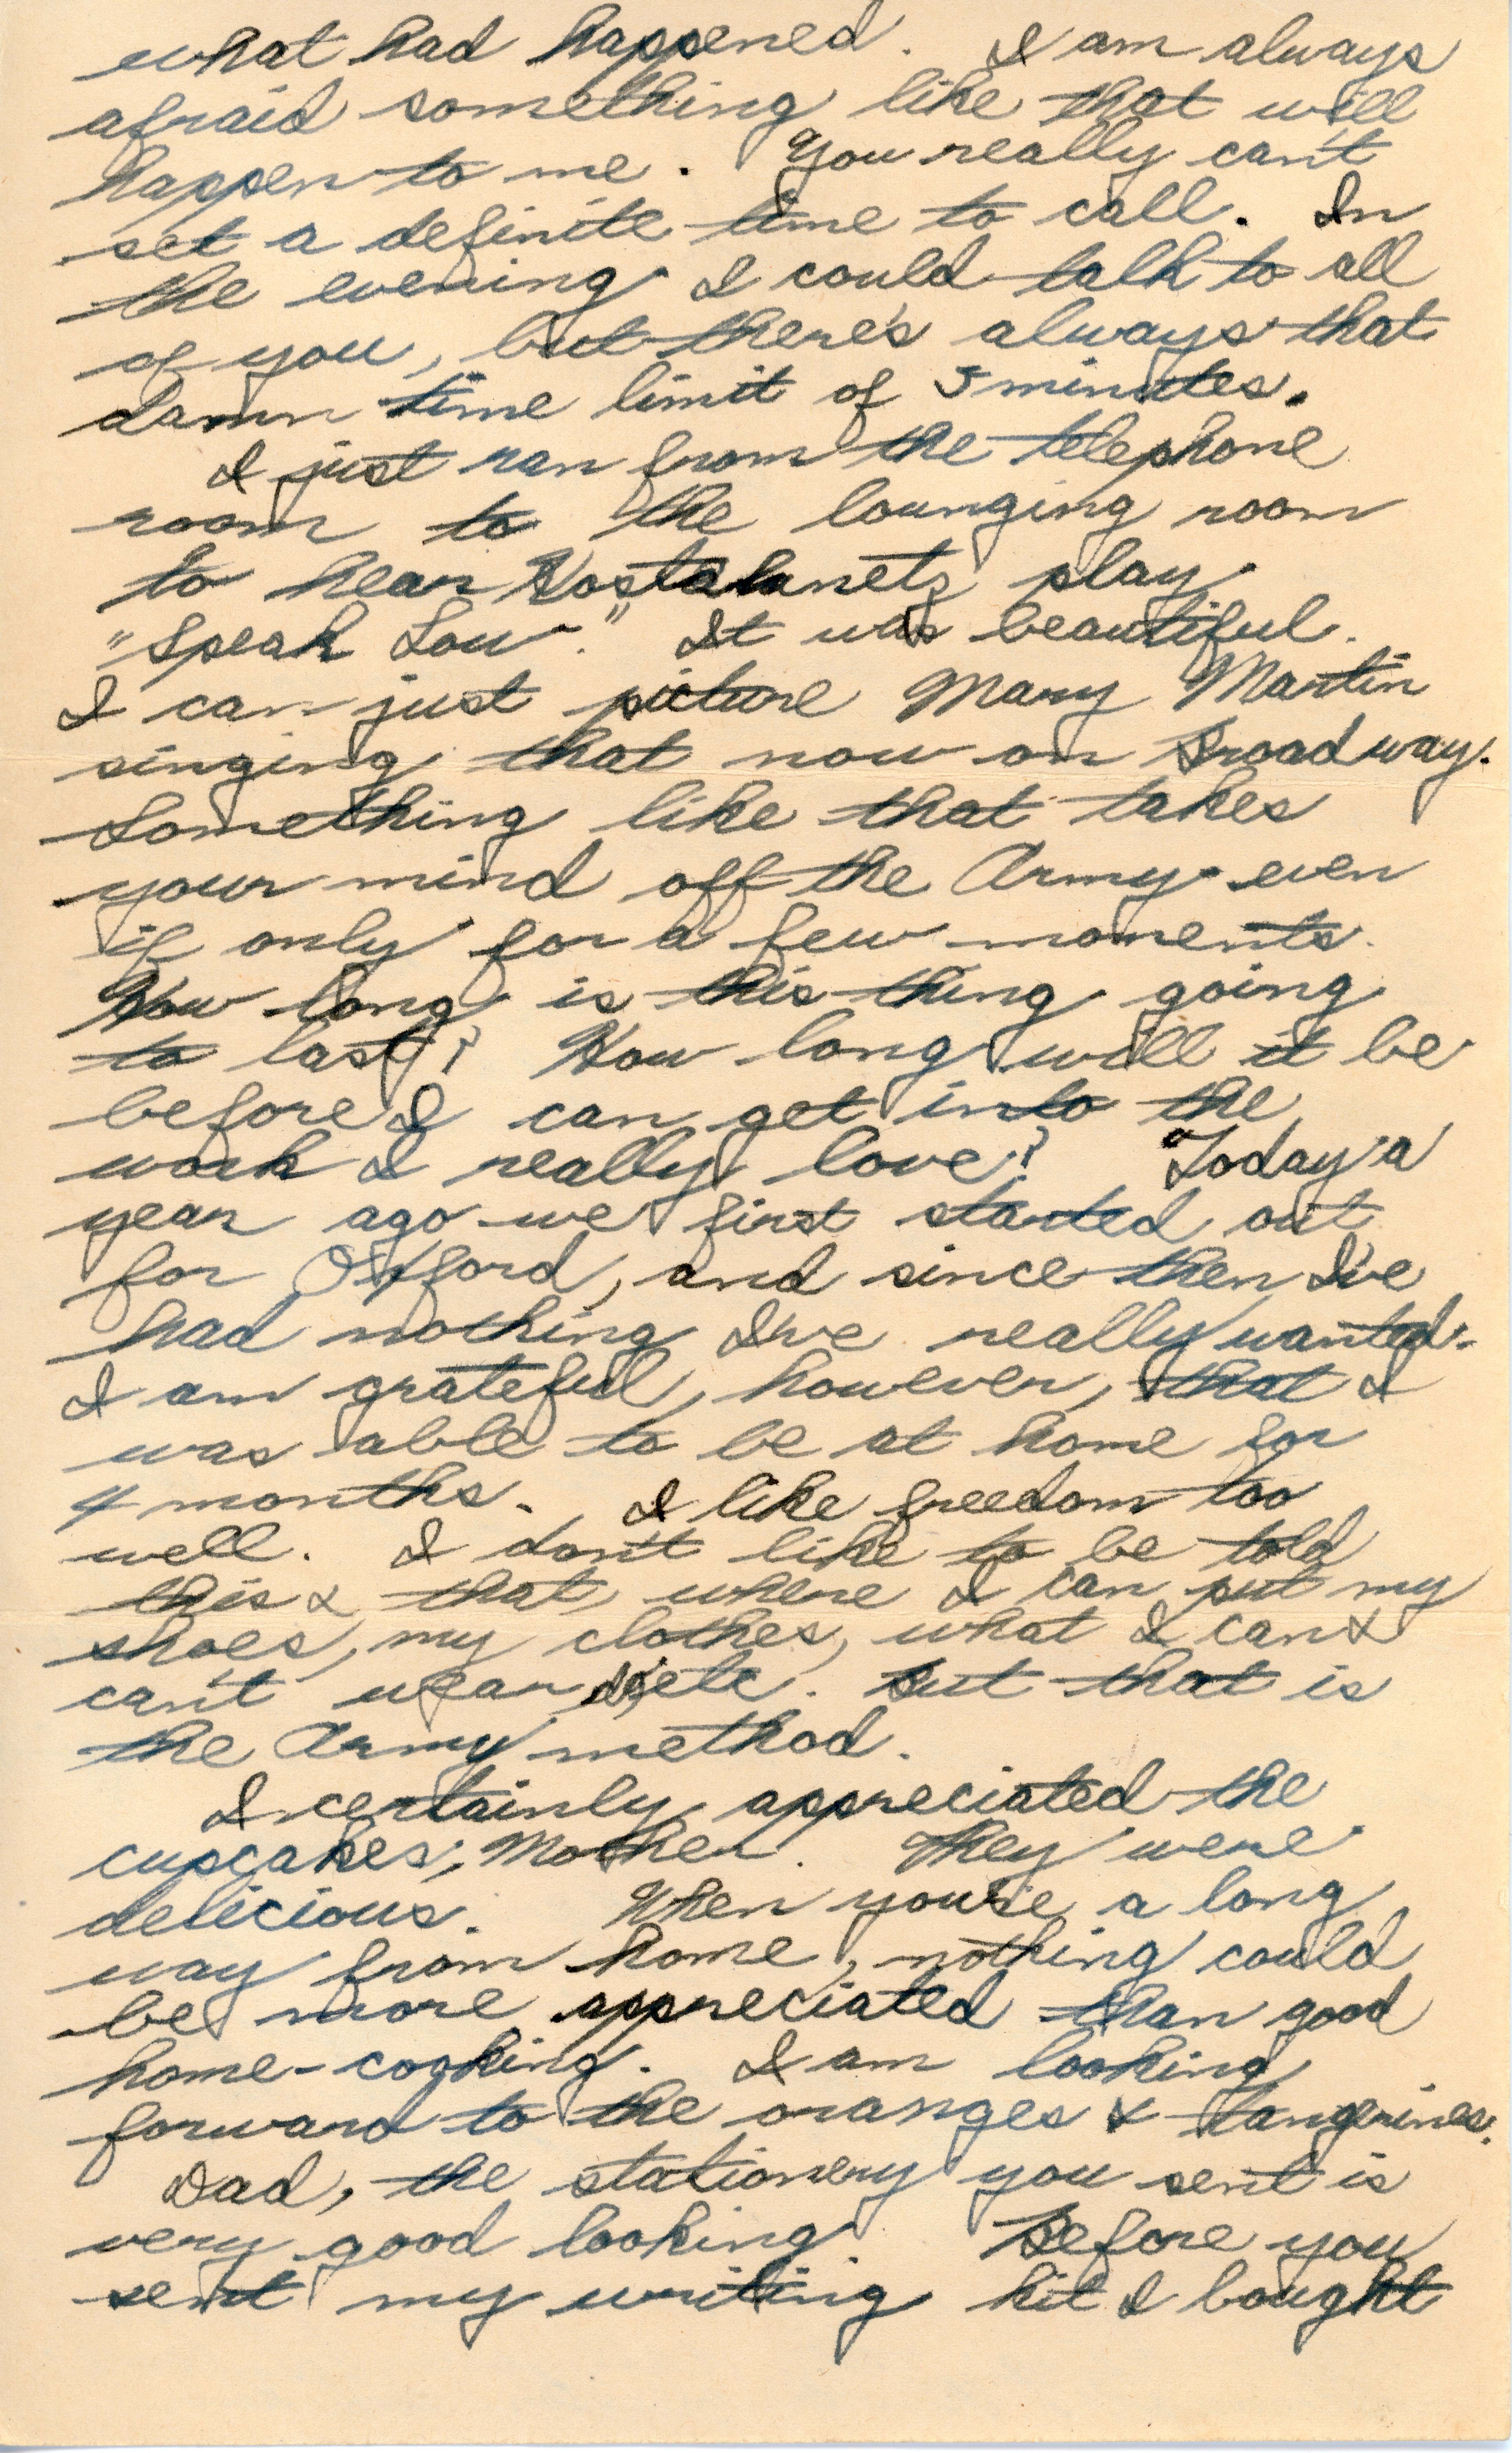 what had happened. I am always
afraid something like that will
happen to me. You really can't
set a definite time to call. In
the evening I could talk to all
of you, but there's always that
damn time limit of 5 minutes.
I just ran from the telephone
room to the lounging room
to hear Kostelanetz play
"Speak Low." It was beautiful.
I can just picture Mary Martin
singing that now on Broadway.
Something like that takes
your mind off the Army even
if only for a few moments.
How long is this thing going
to last? How long will it be
before I can get into the
work I really love? Today a
year ago we first started out
for Oxford, and since then I've
had nothing I've really wanted.
I am grateful, however, that I
was able to be at home for
4 months. I like freedom too
well. I don't like to be told
this & that, where I can put my
shoes, my clothes, what I can &
can't wear, etc. But that is
the Army method.
I certainly appreciated the
cupcakes, Mother. They were
delicious. When you're a long
way from home, nothing could
be more appreciated than good
home-cooking. I am looking
forward to the oranges & tangerines.
Dad, the stationery you sent is
very good looking. Before you
sent my writing kit I bought